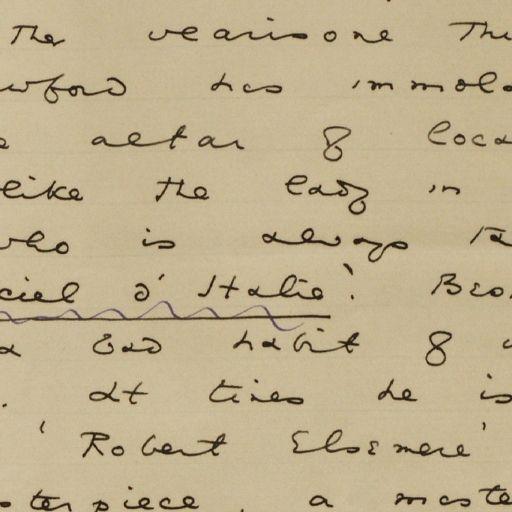 The
wford has immola
e altar of loca
like the lady in
who is always ta
ciel d' Italie'. Bes
a bad habit of
. At times he is
'Robert Elsmere'
sterpiece, a maste